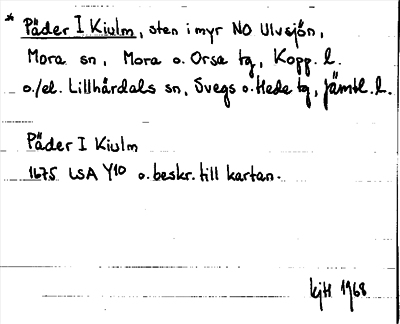 * Päder I Kiulm, sten i myr NO Ulvsjön,
Mora sn, Mora o. Orsa tg, Kopp. l.
o./el. Lillhärdals sn, Svegs o. Hede tg, Jämtl. l.
Päder I Kiulm
1675 LSA Y10 o. beskr. till kartan.
kjH 1968